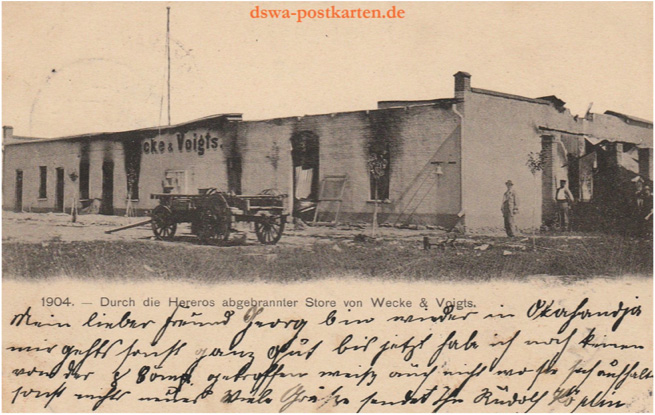 dswa-postkarten.de
Wecke & Voigts.
1904. — Durch die Hereros abgebrannter Store von Wecke & Voigts.
Mein lieber Freund Georg bin wieder in Okahandja
mir gehts sonst ganz gut bis jetzt hab ich noch keinen
von der getroffen weiss auch nicht wo sie sich aufhalten
sonst nichts neues Viele Grüsse sendet Dir Rudolf